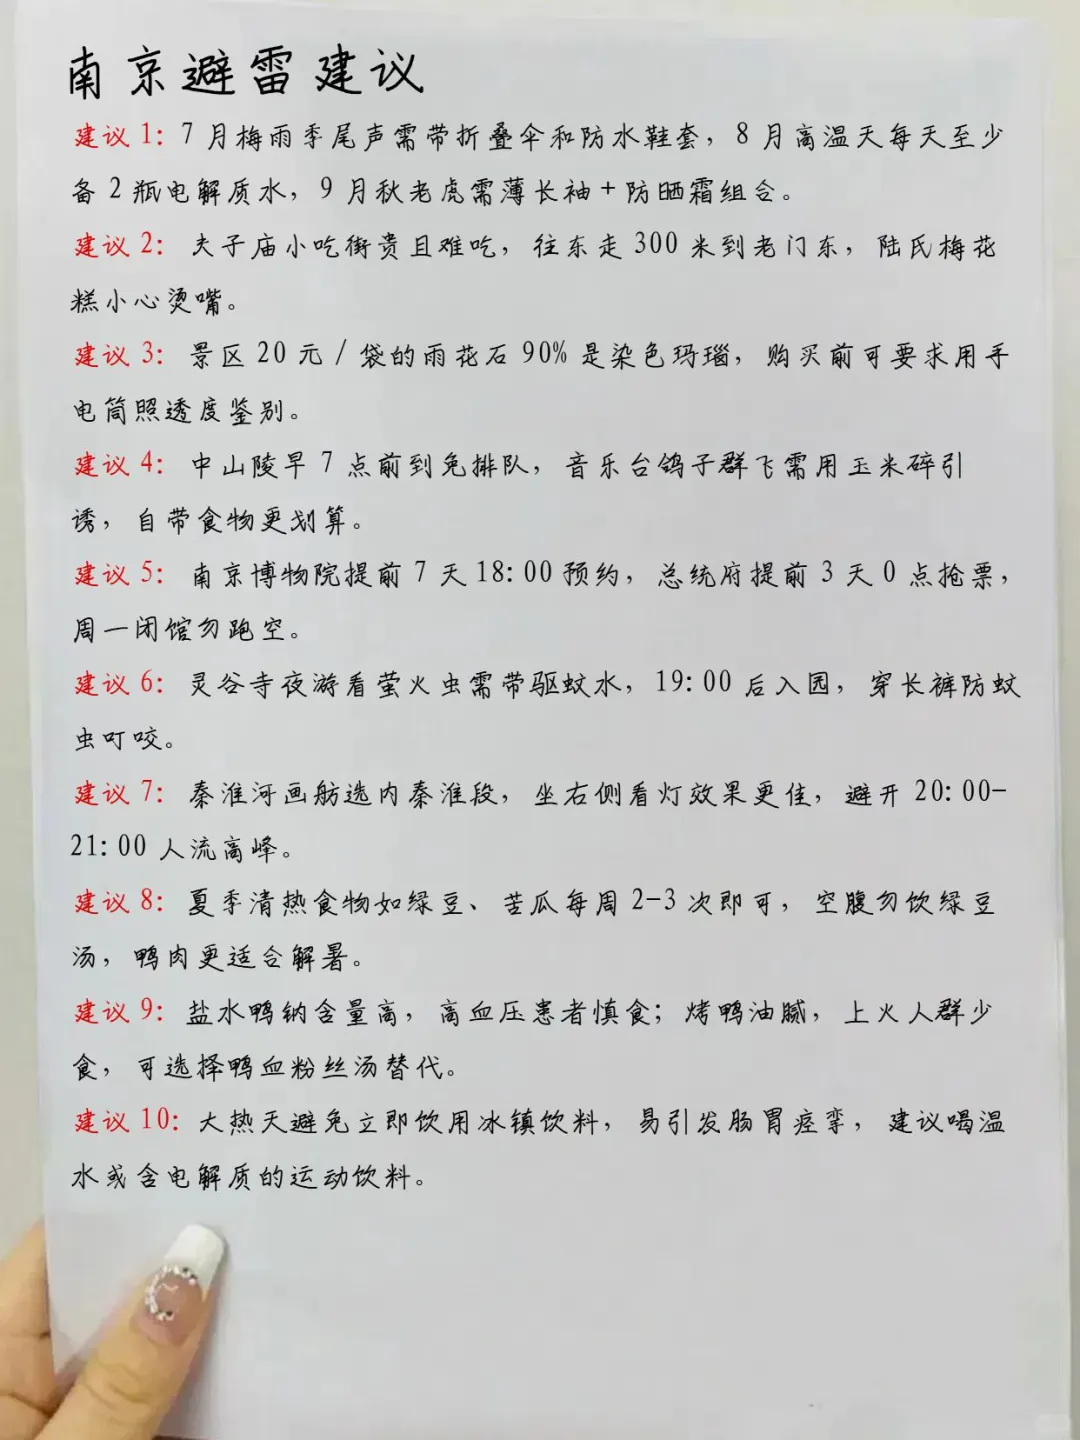 南京避雷建议
建议 1: 7 月梅雨季尾声需带折叠伞和防水鞋套，8 月高温天每天至少
备 2 瓶电解质水，9 月秋老虎需薄长袖 + 防晒霜组合。
建议 2: 夫子庙小吃街贵且难吃，往东走 300 米到老门东，陆氏梅花
糕小心烫嘴。
建议 3: 景区 20 元 / 袋的雨花石 90% 是染色玛瑙，购买前可要求用手
电筒照透度鉴别。
建议 4: 中山陵早 7 点前到免排队，音乐台鸽子群飞需用玉米碎引
诱，自带食物更划算。
建议 5: 南京博物院提前 7 天 18:00 预约，总统府提前 3 天 0 点抢票，
周一闭馆勿跑空。
建议 6: 灵谷寺夜游看萤火虫需带驱蚊水，19:00 后入园，穿长裤防蚊
虫叮咬。
建议 7: 秦淮河画舫选内秦淮段，坐右侧看灯效果更佳，避开 20:00-
21:00 人流高峰。
建议 8: 夏季清热食物如绿豆、苦瓜每周 2-3 次即可，空腹勿饮绿豆
汤，鸭肉更适合解暑。
建议 9: 盐水鸭钠含量高，高血压患者慎食；烤鸭油腻，上火人群少
食，可选择鸭血粉丝汤替代。
建议 10: 大热天避免立即饮用冰镇饮料，易引发肠胃痉挛，建议喝温
水或含电解质的运动饮料。